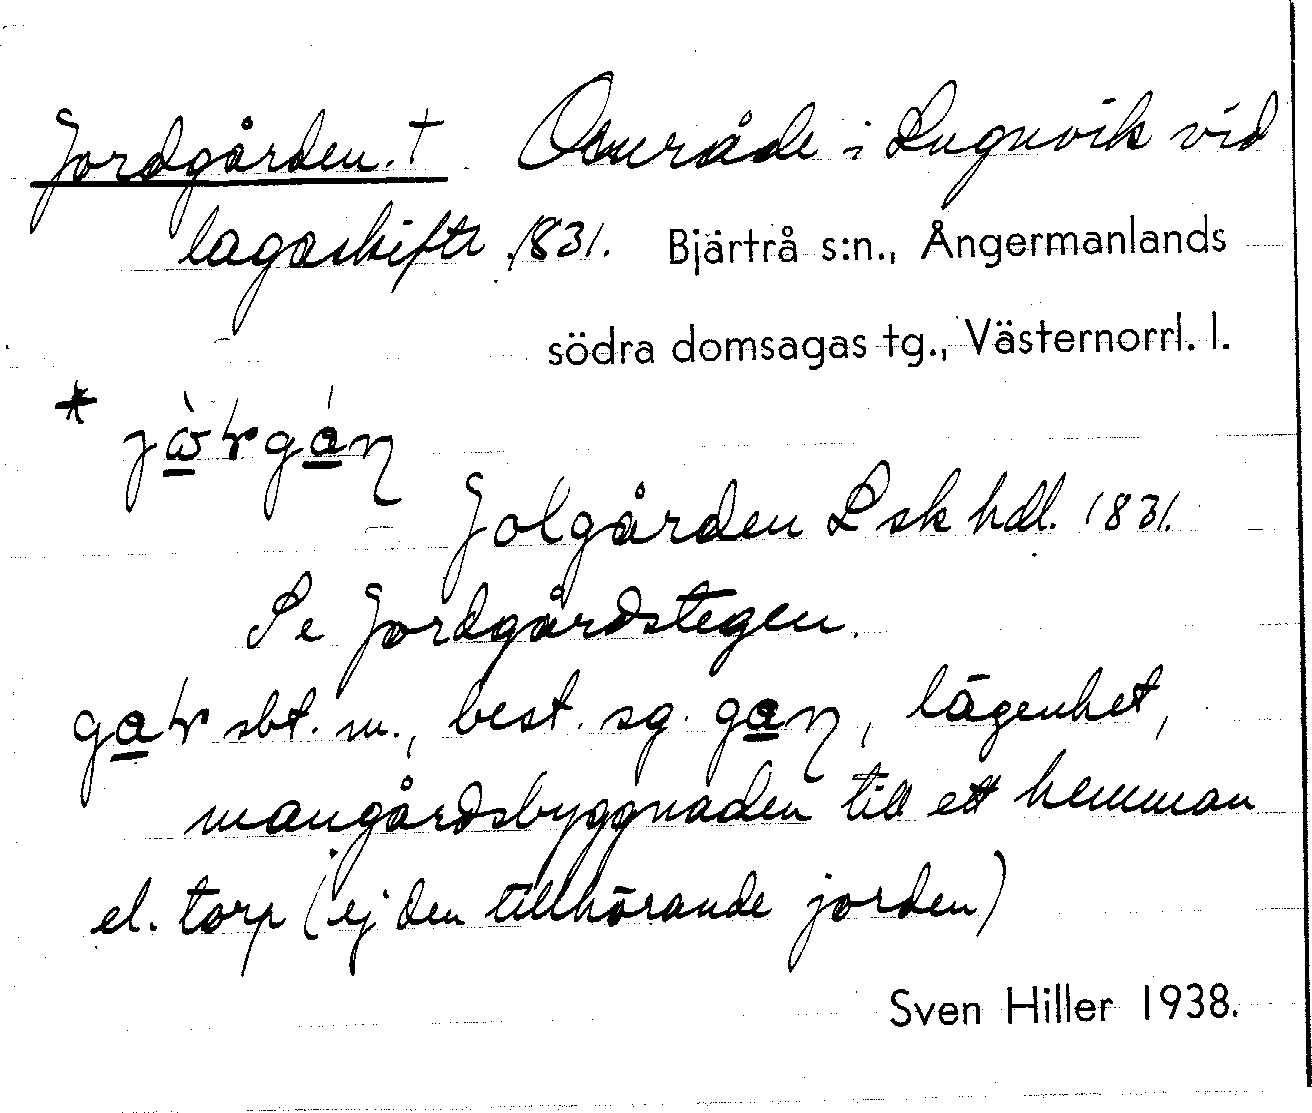 Jordgården. † Område i Lugnvik vid
lagaskifte 1831. Bjärtrå s:n., Ångermanlands
södra domsagas tg., Västernorrl. l.
*
Jolgården Lsk hdl. 1831.
Se Jordgårdstegen.
sbt. m., best. sg. , lägenhet,
mangårdsbyggnaden till ett hemman
el. torp (ej den tillhörande jorden)
Sven Hiller 1938.